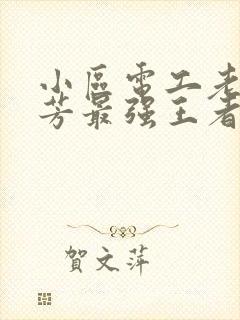 小區電工老
芳最强王者
賀文萍